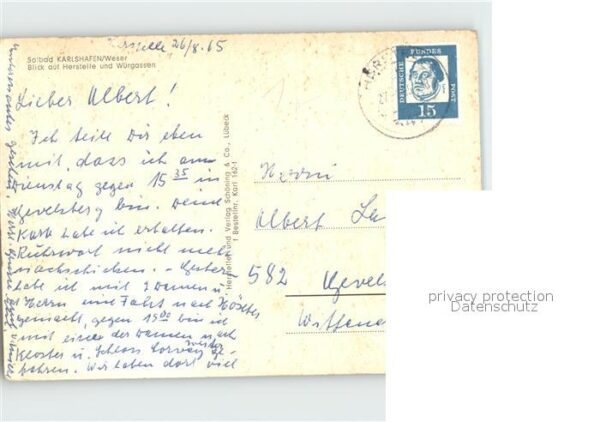 Solbad KARLSHAFEN/Weser
Blick auf Herstelle und Würgassen
Herstelle 26/8.65
Lieber Albert!
Ich teile Dir eben
mit, dass ich am
Dienstag gegen 15 35 in
Gevelsberg bin. Deine
Karte habe ich erhalten.
Rückwort nicht mehr
nachschicken. - Gestern
habe ich mit 2 Damen u.
1 Herrn eine Fahrt nach Höxter
gemacht, gegen 15 00 bin ich
mit einer der Damen nach
Kloster u. Schloss Corvey
gefahren. Wir haben dort viel
Hersteller und Verlag Schöning & Co., Lübeck
Bestellnr. Karl 1624
DEUTSCHE BUNDESPOST
15
Herrn
Albert
582 Gevels
privacy protection
Datenschutz